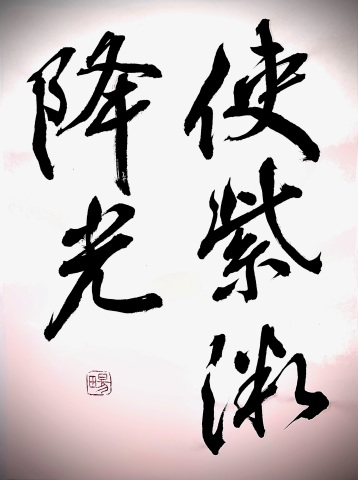 使紫微
降光